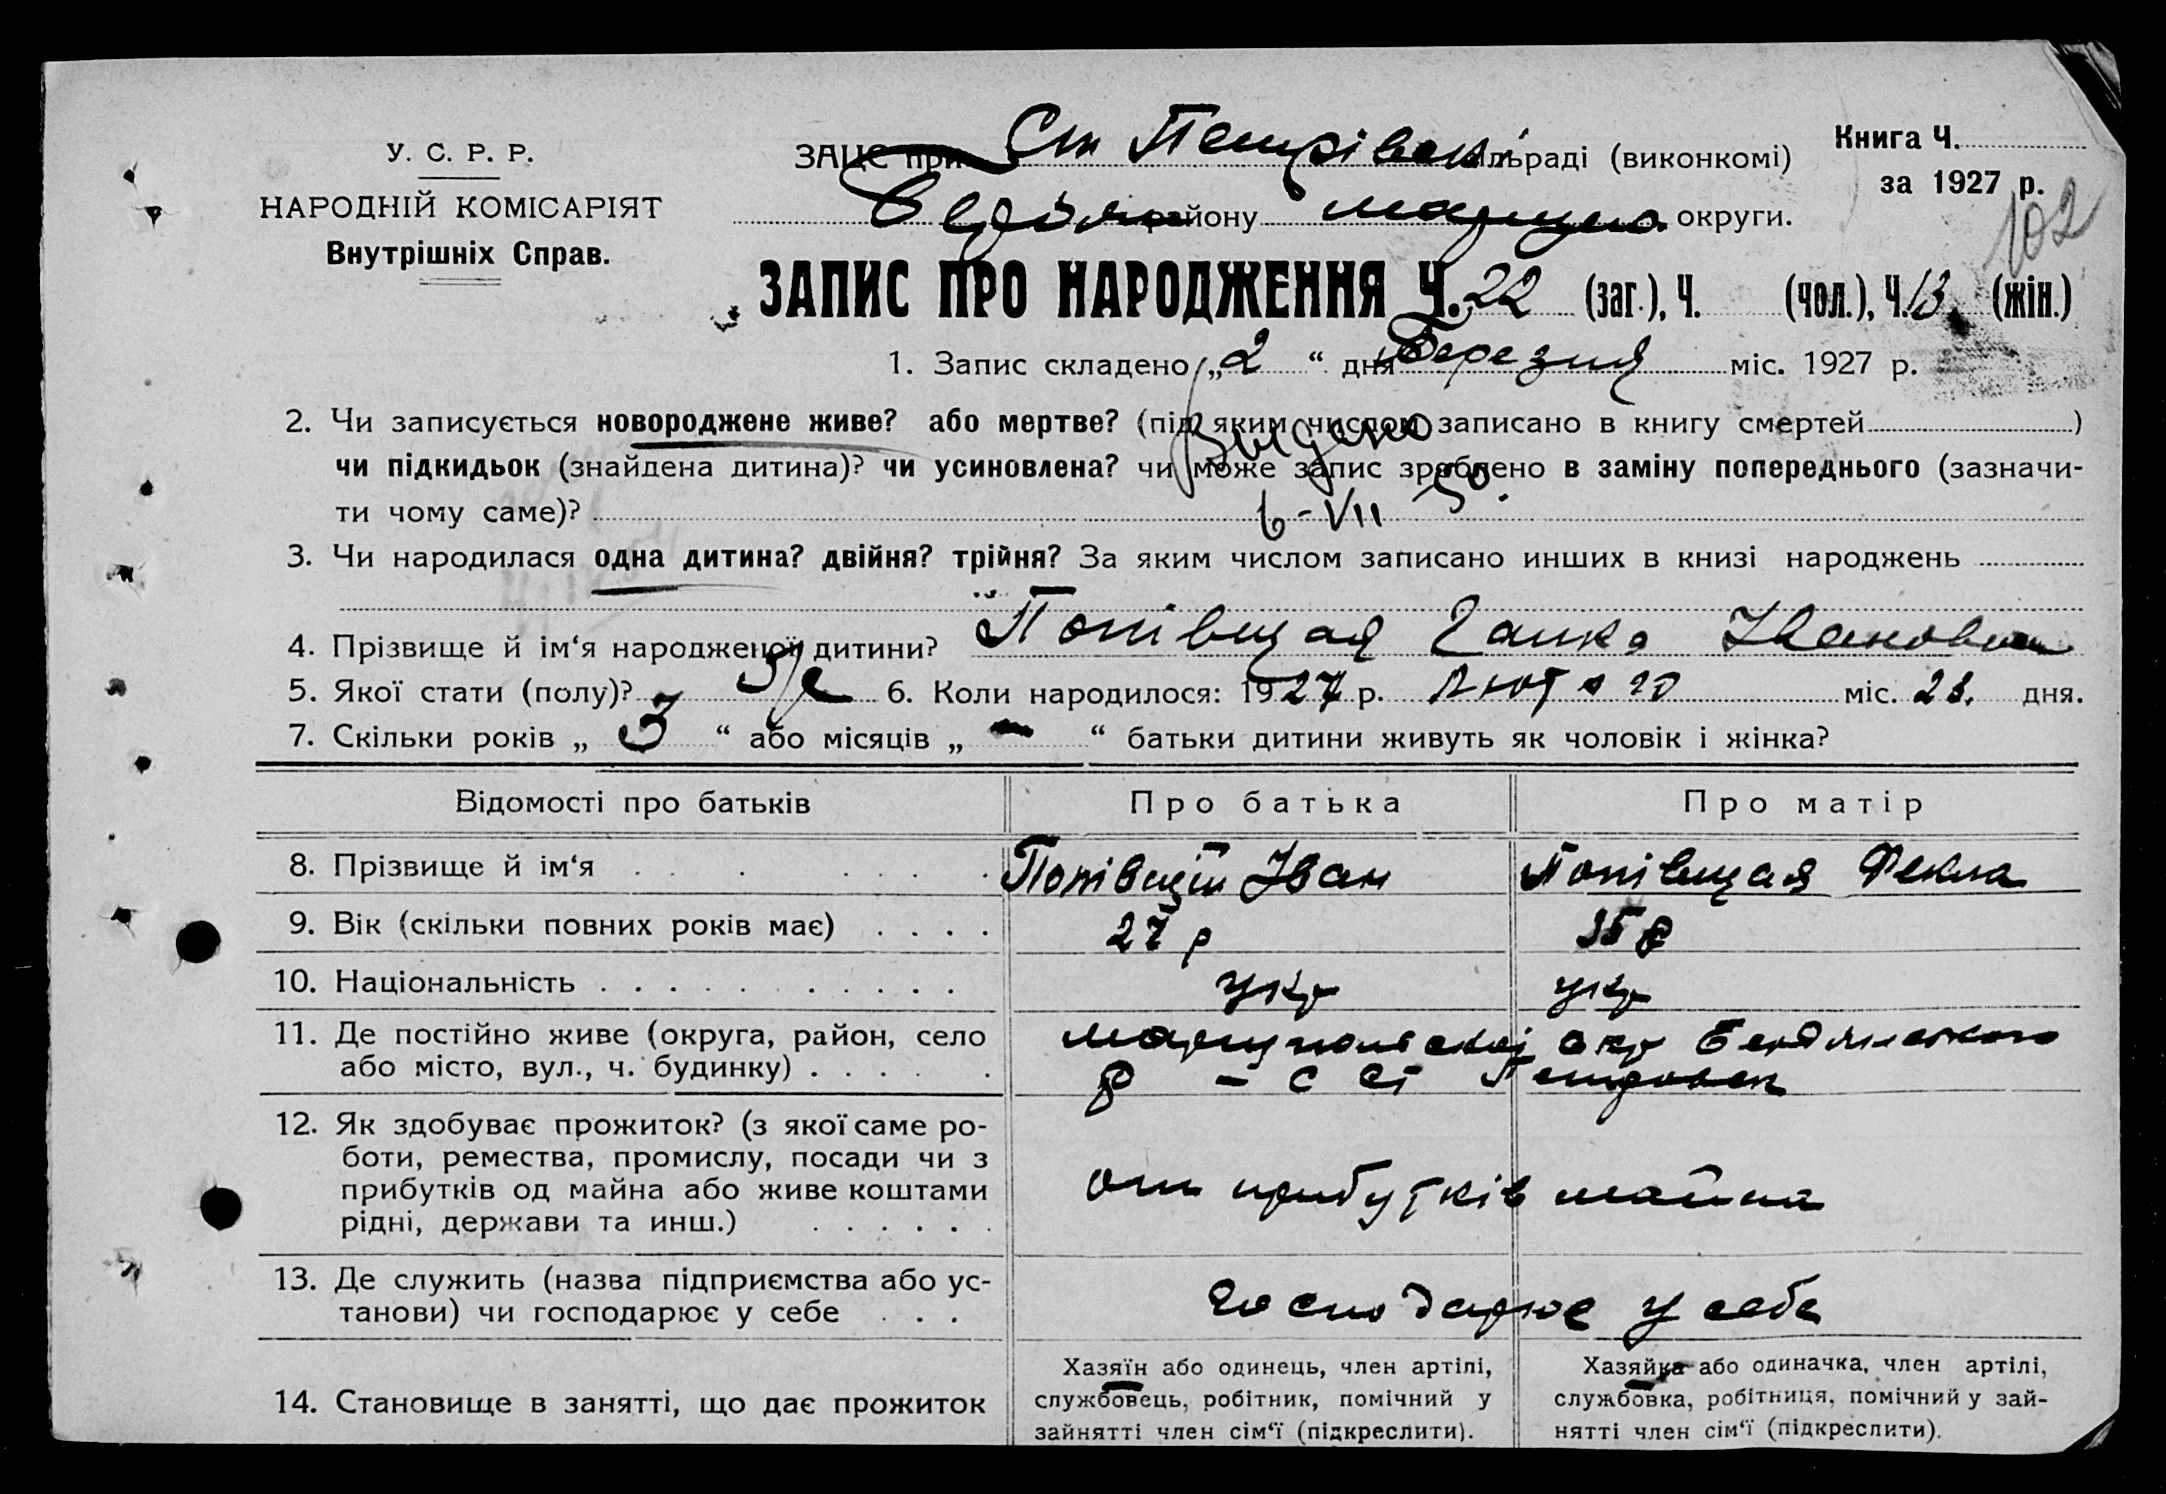 У. С. Р. Р.
НАРОДНІЙ КОМІСАРІЯТ
Внутрішніх Справ.
ЗАЦС при Ст Петрівськ ільраді (виконкомі)
району округи.
Книга Ч.
за 1927 р.
102
ЗАПИС ПРО НАРОДЖЕННЯ Ч. 22 (заг.), Ч. (чол.), Ч. 13 (жін.)
1. Запис складено „ 2 “ дня Березня міс. 1927 р.
2. Чи записується новороджене живе? або мертве? (під яким числом записано в книгу смертей )
чи підкидьок (знайдена дитина)? чи усиновлена? чи може запис зроблено в заміну попереднього (зазначи-
ти чому саме)?
Выдано
6-VII 50.
3. Чи народилася одна дитина? двійня? трійня? За яким числом записано инших в книзі народжень
4. Прізвище й ім‘я народженої дитини? Попівщая Ганка Ивановна
5. Якої стати (полу)? ж 6. Коли народилося: 1927 р. Лютого міс. 23. дня.
7. Скільки років „ 3 “ або місяців „ — “ батьки дитини живуть як чоловік і жінка?
Відомості про батьків Про батька Про матір
8. Прізвище й ім‘я Попівщій Іван Попівщая Фекла
9. Вік (скільки повних років має) 27 р
10. Національність укр укр
11. Де постійно живе (округа, район, село
або місто, вул., ч. будинку)
Мариупольскої окр Бердянського
р - с Ст Петровск
12. Як здобуває прожиток? (з якої саме ро-
боти, ремества, промислу, посади чи з
прибутків од майна або живе коштами
рідні, держави та инш.)
от прибутків майна
13. Де служить (назва підприємства або ус-
танови) чи господарює у себе
господарює у себе
14. Становище в занятті, що дає прожиток
Хазяїн або одинець, член артілі,
службовець, робітник, помічний у
зайнятті член сім‘ї (підкреслити).
Хазяйка або одиначка, член артілі,
службовка, робітниця, помічний у зай-
нятті член сім‘ї (підкреслити).